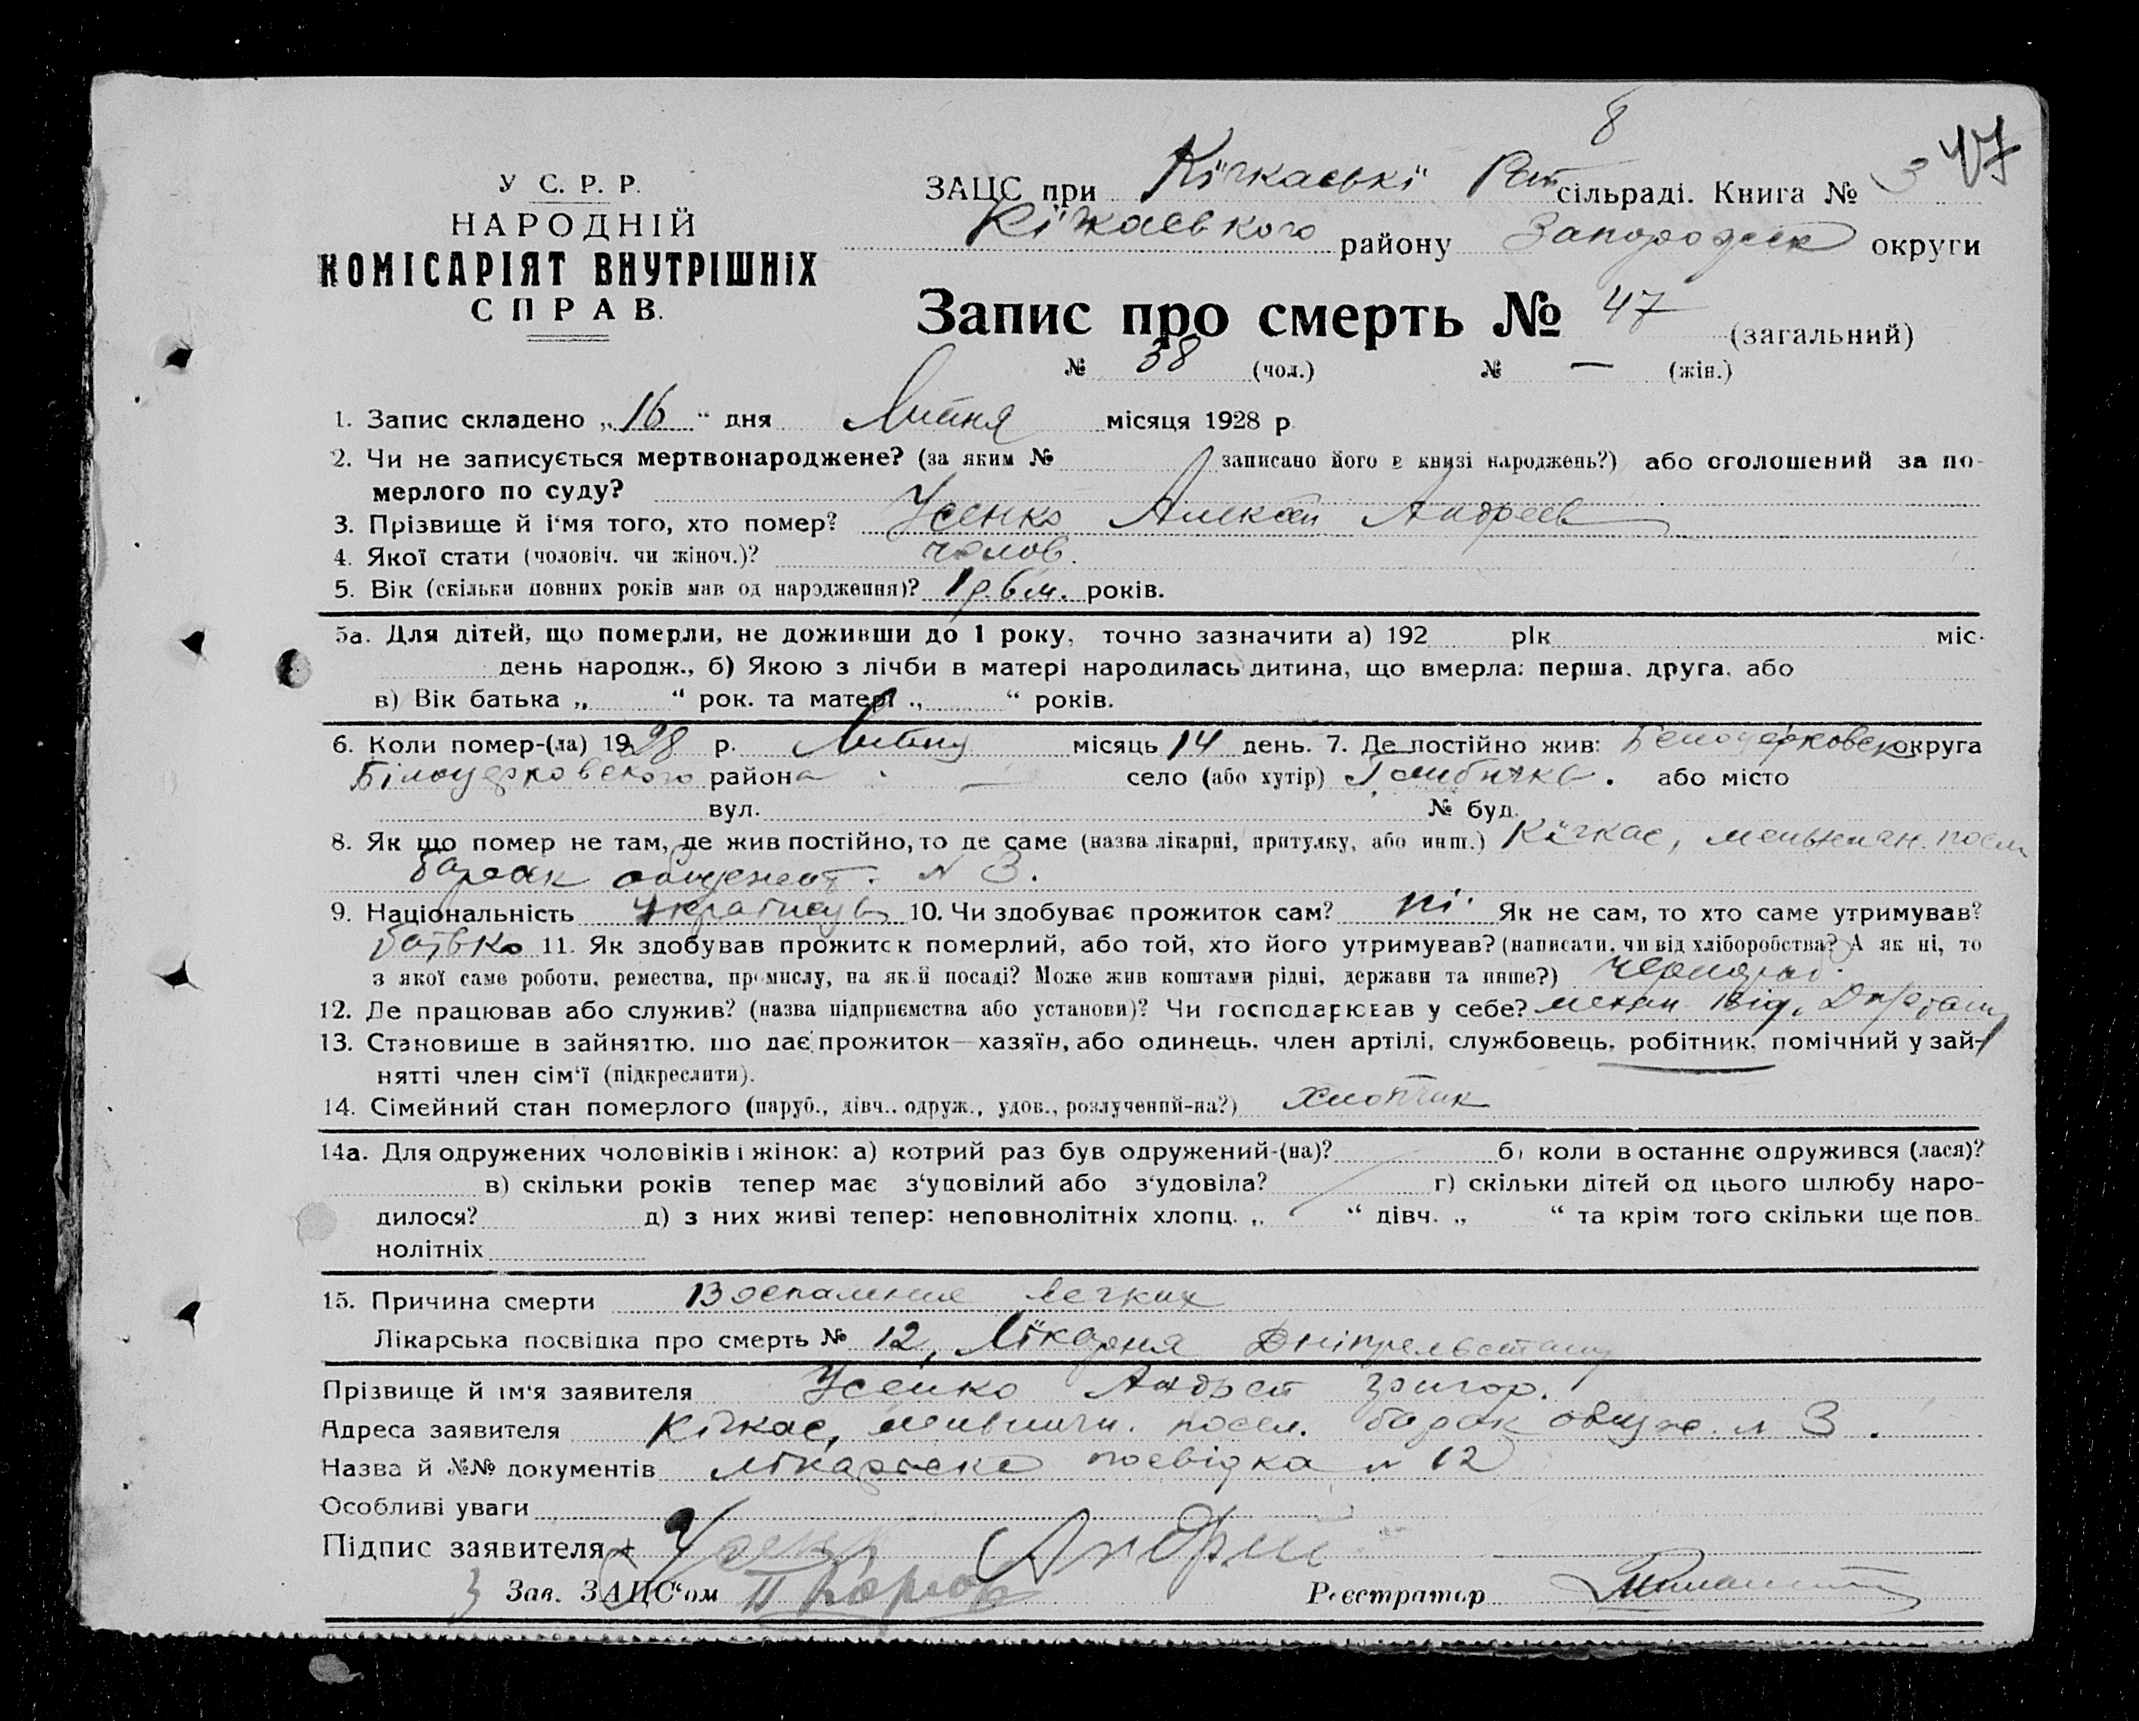 8
47
У С. Р. Р.
НАРОДНІЙ
КОМІСАРІЯТ ВНУТРІШНІХ
СПРАВ.
ЗАЦС при Кічкаські сільраді. Книга № 3
Кічкаського району Запорожск округи
Запис про смерть № 47 (загальний)
№ 38 (чол.) № — (жін.)
1. Запис складено „16“ дня Липня місяця 1928 р
2. Чи не записується мертвонароджене? (за яким № записано його в книзі народжень?) або оголошений за по-
мерлого по суду?
3. Прізвище й і'мя того, хто помер? Усенко Алексей Андреев
4. Якої стати (чоловіч. чи жіноч.)? чолов.
5. Вік (скільки повних років мав од народження)? 1 р. 6 м. років.
5а. Для дітей, що померли, не доживши до 1 року, точно зазначити а) 192 рік міс.
день народж., б) Якою з лічби в матері народилась дитина, що вмерла: перша, друга, або
в) Вік батька „ “ рок. та матері „ “ років.
6. Коли помер-(ла) 1928 р. Липня місяць 14 день. 7. Де постійно жив: Белоцерковск округа
Білоцерковского района — село (або хутір) . або місто
вул. № буд.
8. Як що помер не там, де жив постійно, то де саме (назва лікарні, притулку, або инш.) Кічкас,
барак общежит. № 3.
9. Національність 10. Чи здобуває прожиток сам? ні. Як не сам, то хто саме утримував?
батько 11. Як здобував прожиток померлий, або той, хто його утримував? (написати, чи від хліборобства? А як ні, то
з якої саме роботи, ремества, промислу, на якій посаді? Може жив коштами рідні, держави та инше?) чернораб.
12. Де працював або служив? (назва підприємства або установи)? Чи господарював у себе? механ від.
13. Становище в зайняттю, що дає прожиток—хазяїн, або одинець, член артілі, службовець, робітник, помічний у зай-
нятті член сім'ї (підкреслити).
14. Сімейний стан померлого (паруб., дівч., одруж., удов., розлучений-на?) хлопчик
14а. Для одружених чоловіків і жінок: а) котрий раз був одружений-(на)? б) коли в останнє одружився (лася)?
в) скільки років тепер має з'удовілий або з'удовіла? г) скільки дітей од цього шлюбу наро-
дилося? д) з них живі тепер: неповнолітніх хлопц. „ “ дівч. „ “ та крім того скільки ще пов.
нолітніх
15. Причина смерти Воспаление легких
Лікарська посвідка про смерть № 12, Лікарня Дніпрельстану
Прізвище й ім'я заявителя Усенко Андрей Григор.
Адреса заявителя Кічкас, посел. барак общеж. № 3.
Назва й №№ документів лікарске посвідка № 12
Особливі уваги
Підпис заявителя + Усенк Андрии
Зав. ЗАЦС'ом
Реєстратор